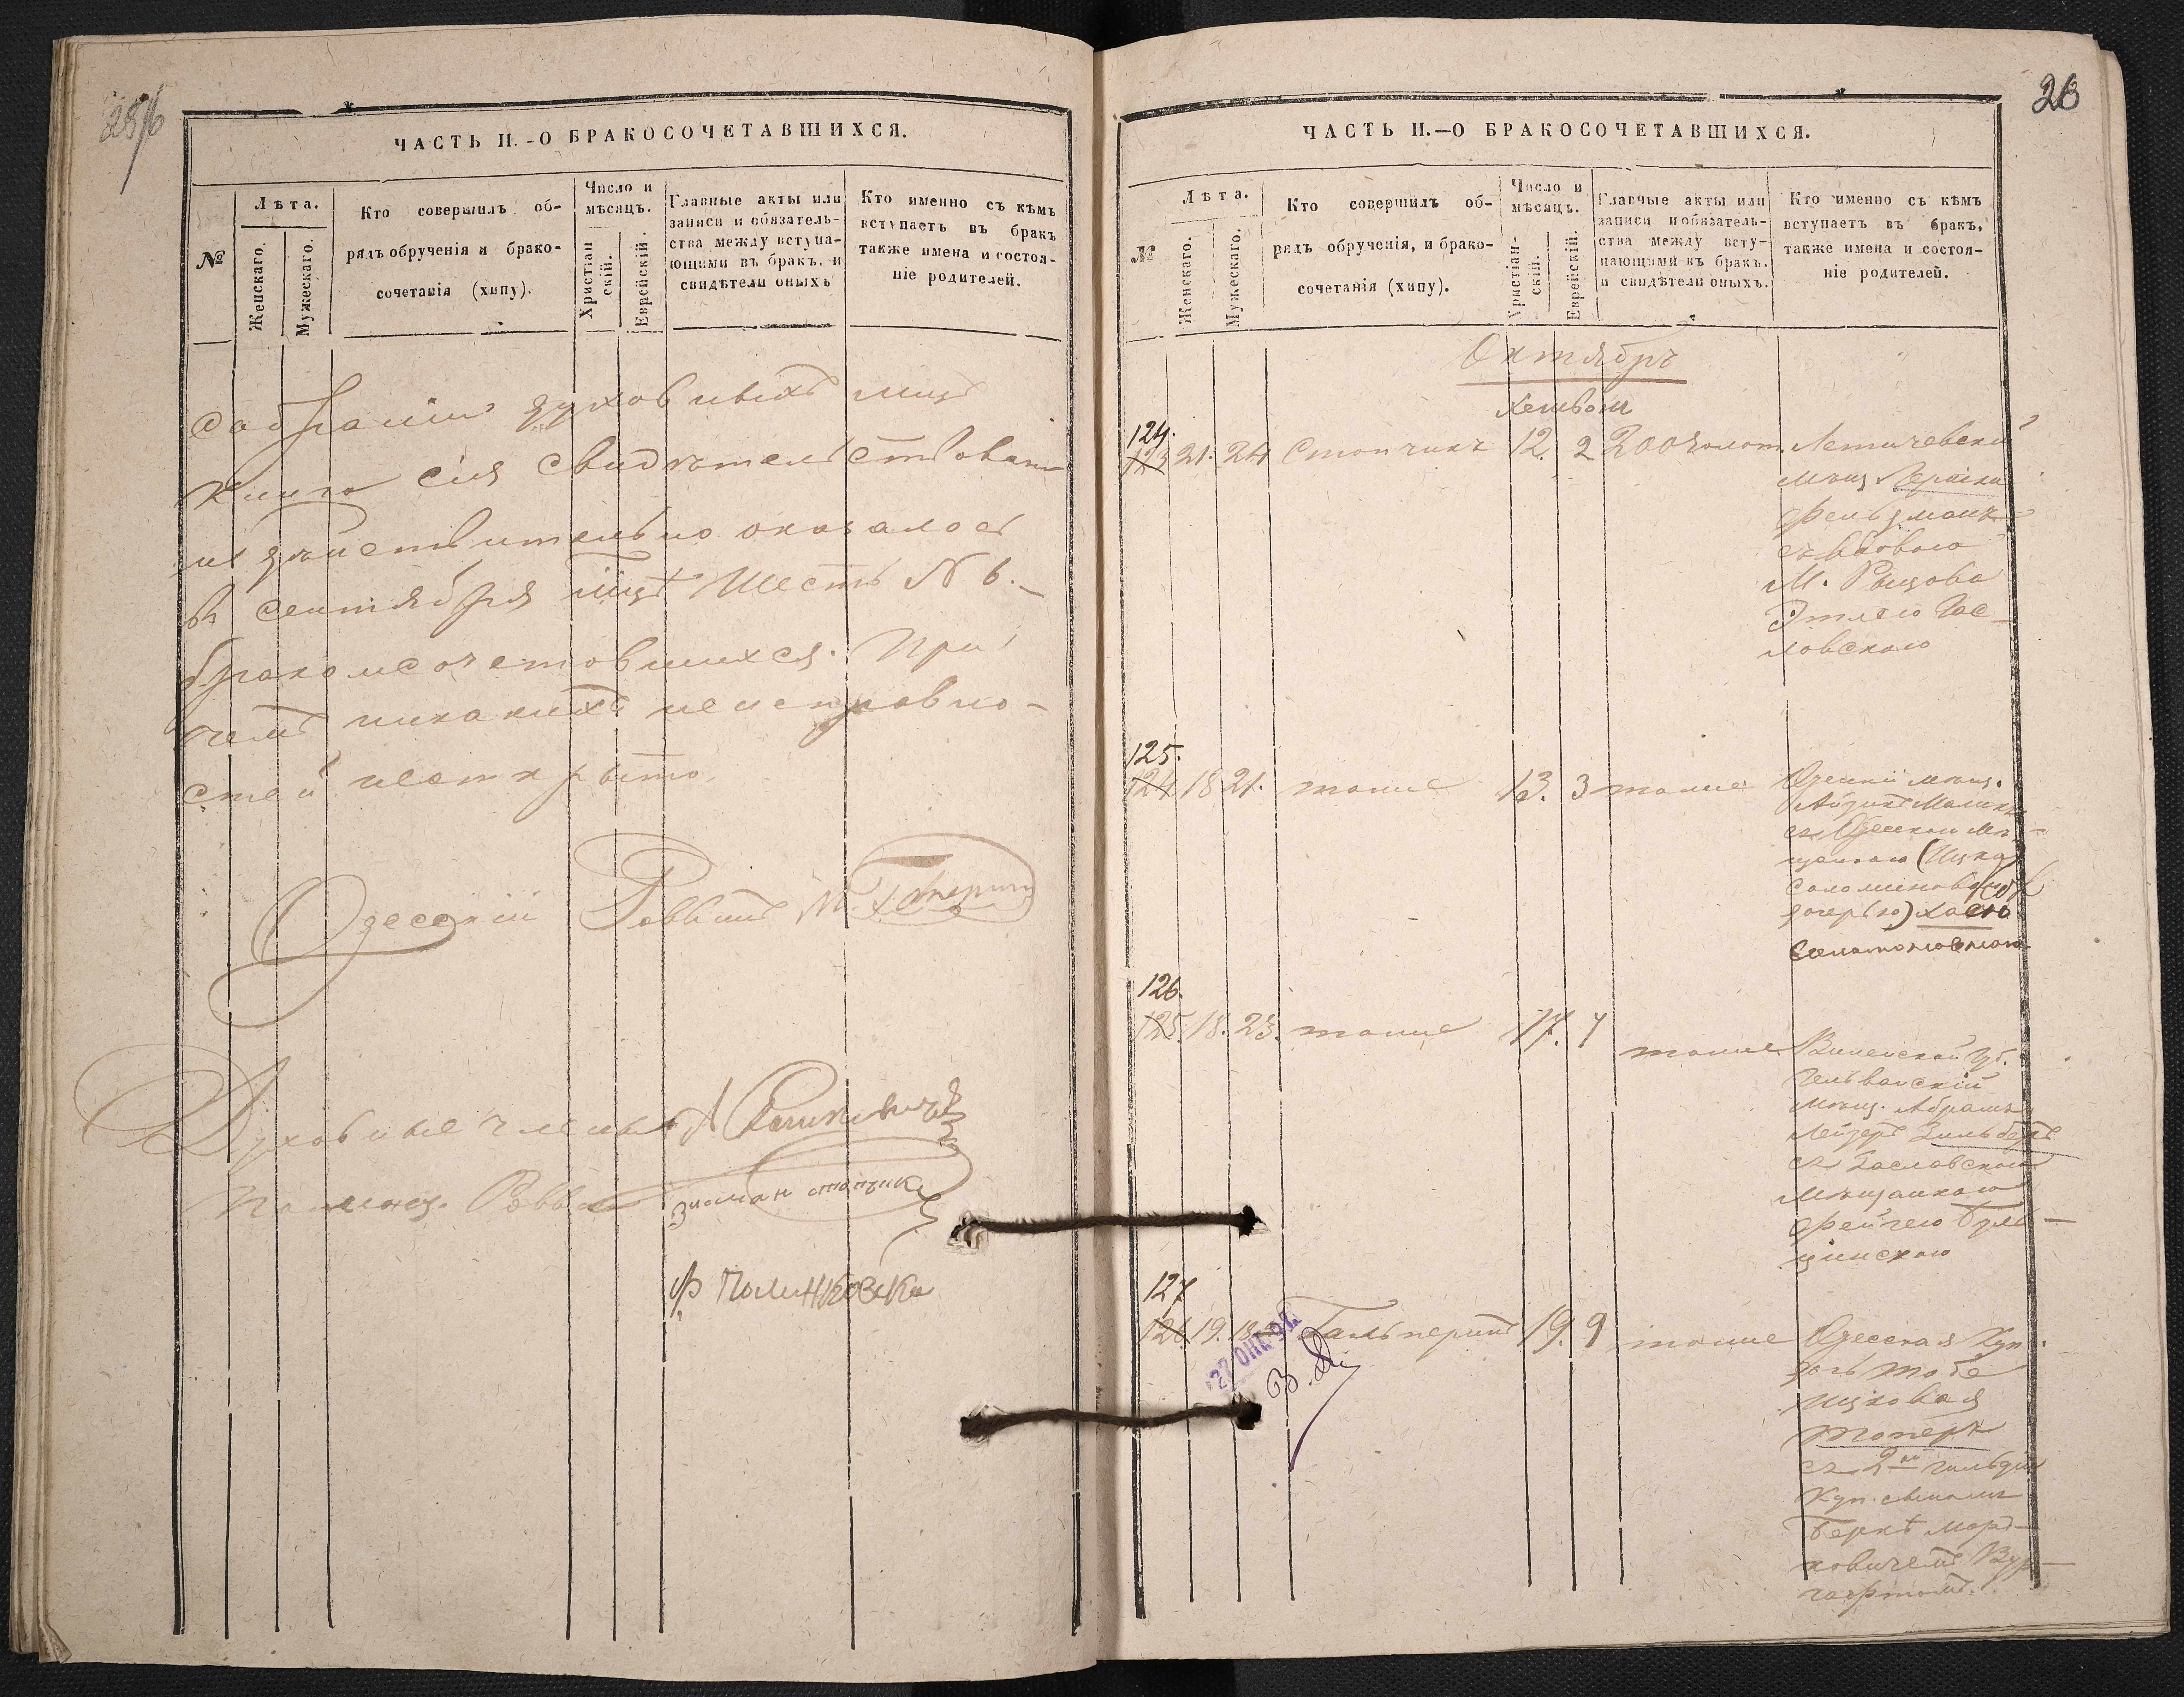 ЧАСТЬ II.-О БРАКОСОЧЕТАВШИХСЯ.
№
Лѣта.
Женскаго.
Мужескаго.
Кто совершилъ об-
рядъ обрученія и брако-
сочетанія (хипу).
Число и
мѣсяцъ.
Христіан
скій.
Еврейскій.
Главные акты или
записи и обязатель-
ства между вступа-
ющими въ бракъ, и
свидѣтели оныхъ
Кто именно съ кѣмъ
вступаетъ въ бракъ
также имена и состоя-
ніе родителей.
собраніи духовныхъ лицъ
Книга сія свидѣтельствована
и дѣйствительно оказалось
въ сентября Шесть № 6.-
бракомсочетовшихся. При
чемъ никакихъ неисправно-
стей неоткрыто.
Одесскій Раввинъ
Духовные члены А
Помощ. Равви Зисман стопчик
ЧАСТЬ II.—О БРАКОСОЧЕТАВШИХСЯ.
26
№
Лѣта.
Женскаго.
Мужескаго.
Кто совершилъ об-
рядъ обрученія, и брако-
сочетанія (хипу).
Число и
мѣсяцъ.
Христіан-
скій.
Еврейскій.
Главные акты или
записи и обязатель-
ства между всту-
пающими въ бракъ.
и свидѣтели оныхъ.
Кто именно съ кѣмъ
вступаетъ въ бракъ,
также имена и состоя-
ніе родителей.
Октябръ
Хешвон
124.
123 21. 24 Стопчикъ 12. 2 200 золот. Летичевскій
мѣщ. Гершко
Фельдманъ
съ вдовою
М. Рыщова
Этлею Зас-
ловскою
125.
124 18 21. тоже 13. 3 тоже Одескій мѣщ.
съ Одесскою Мѣ-
щанкою (Ицка
дочерью) Хаею
Соломоновною
126.
125. 18. 23. тоже 17. 7 тоже Виленской губ.
мѣщ. Абрамъ
Лейзеръ Зильберъ
съ Заславскою
Мѣщанкою
Фейгею Буль-
щинскою
127
126 19. 18. Гальперинъ 19. 9 тоже Одесская Куп.
дочь Тобе
Ицковая
Топеръ
съ 2ой гильдіи
Куп. сыномъ
БеркѣМорд-
ковичемъ Вур-
гафтомъ.